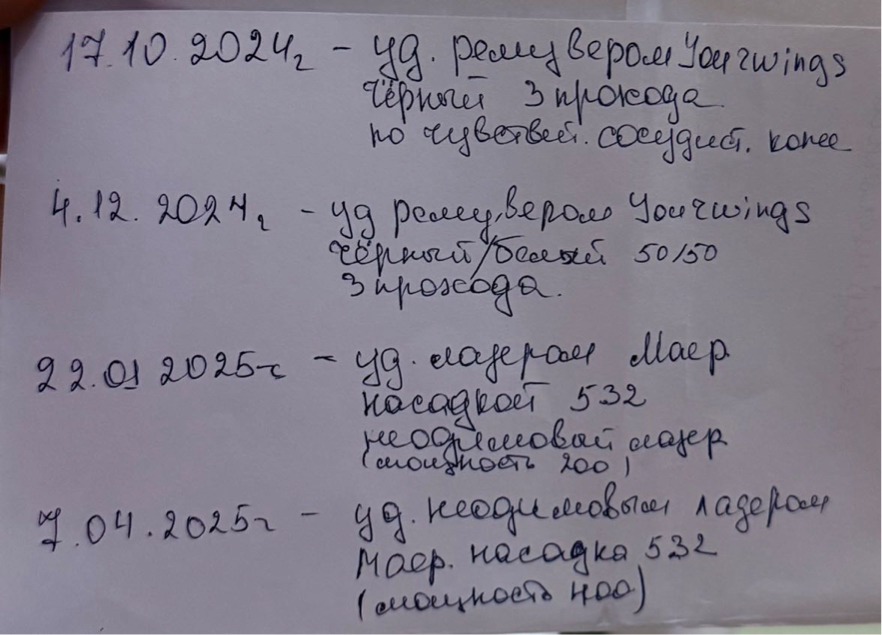 17.10.2024г – уд. ремувером Yourwings
чёрный 3 прохода.
по чувствит. сосудист. копее
4.12.2024г – уд ремувером Yourwings
чёрный/белый 50/50
3 прохода.
22.01 2025г – уд. лазером Маер
насадкой 532
неодимовый лазер
(мощность 200)
7.04.2025г – уд. неодимовым лазером
Маер. насадка 532
(мощность 400)